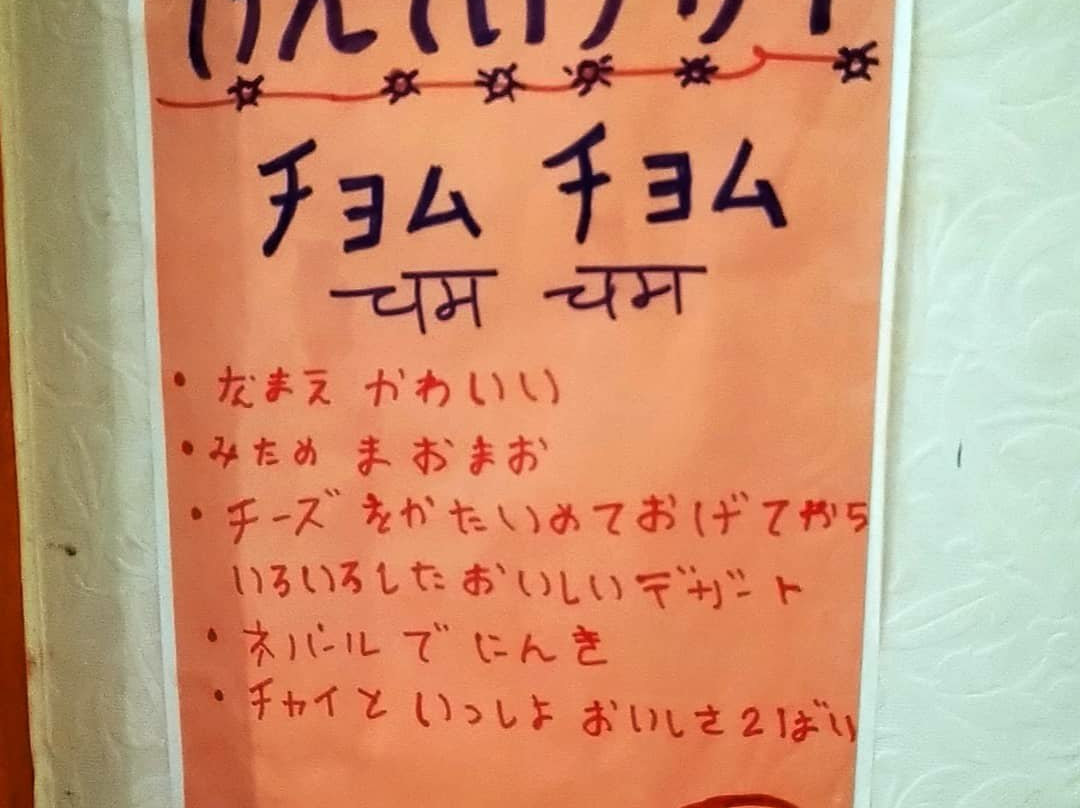 チョム チョム
चम चम
・なまえ かわいい
・みため まおまお
・チーズ をかたいめておげてから
いろいろしたおいしいデザート
・ネパール で にんき
・チャイと いっしょ おいしさ21ばい